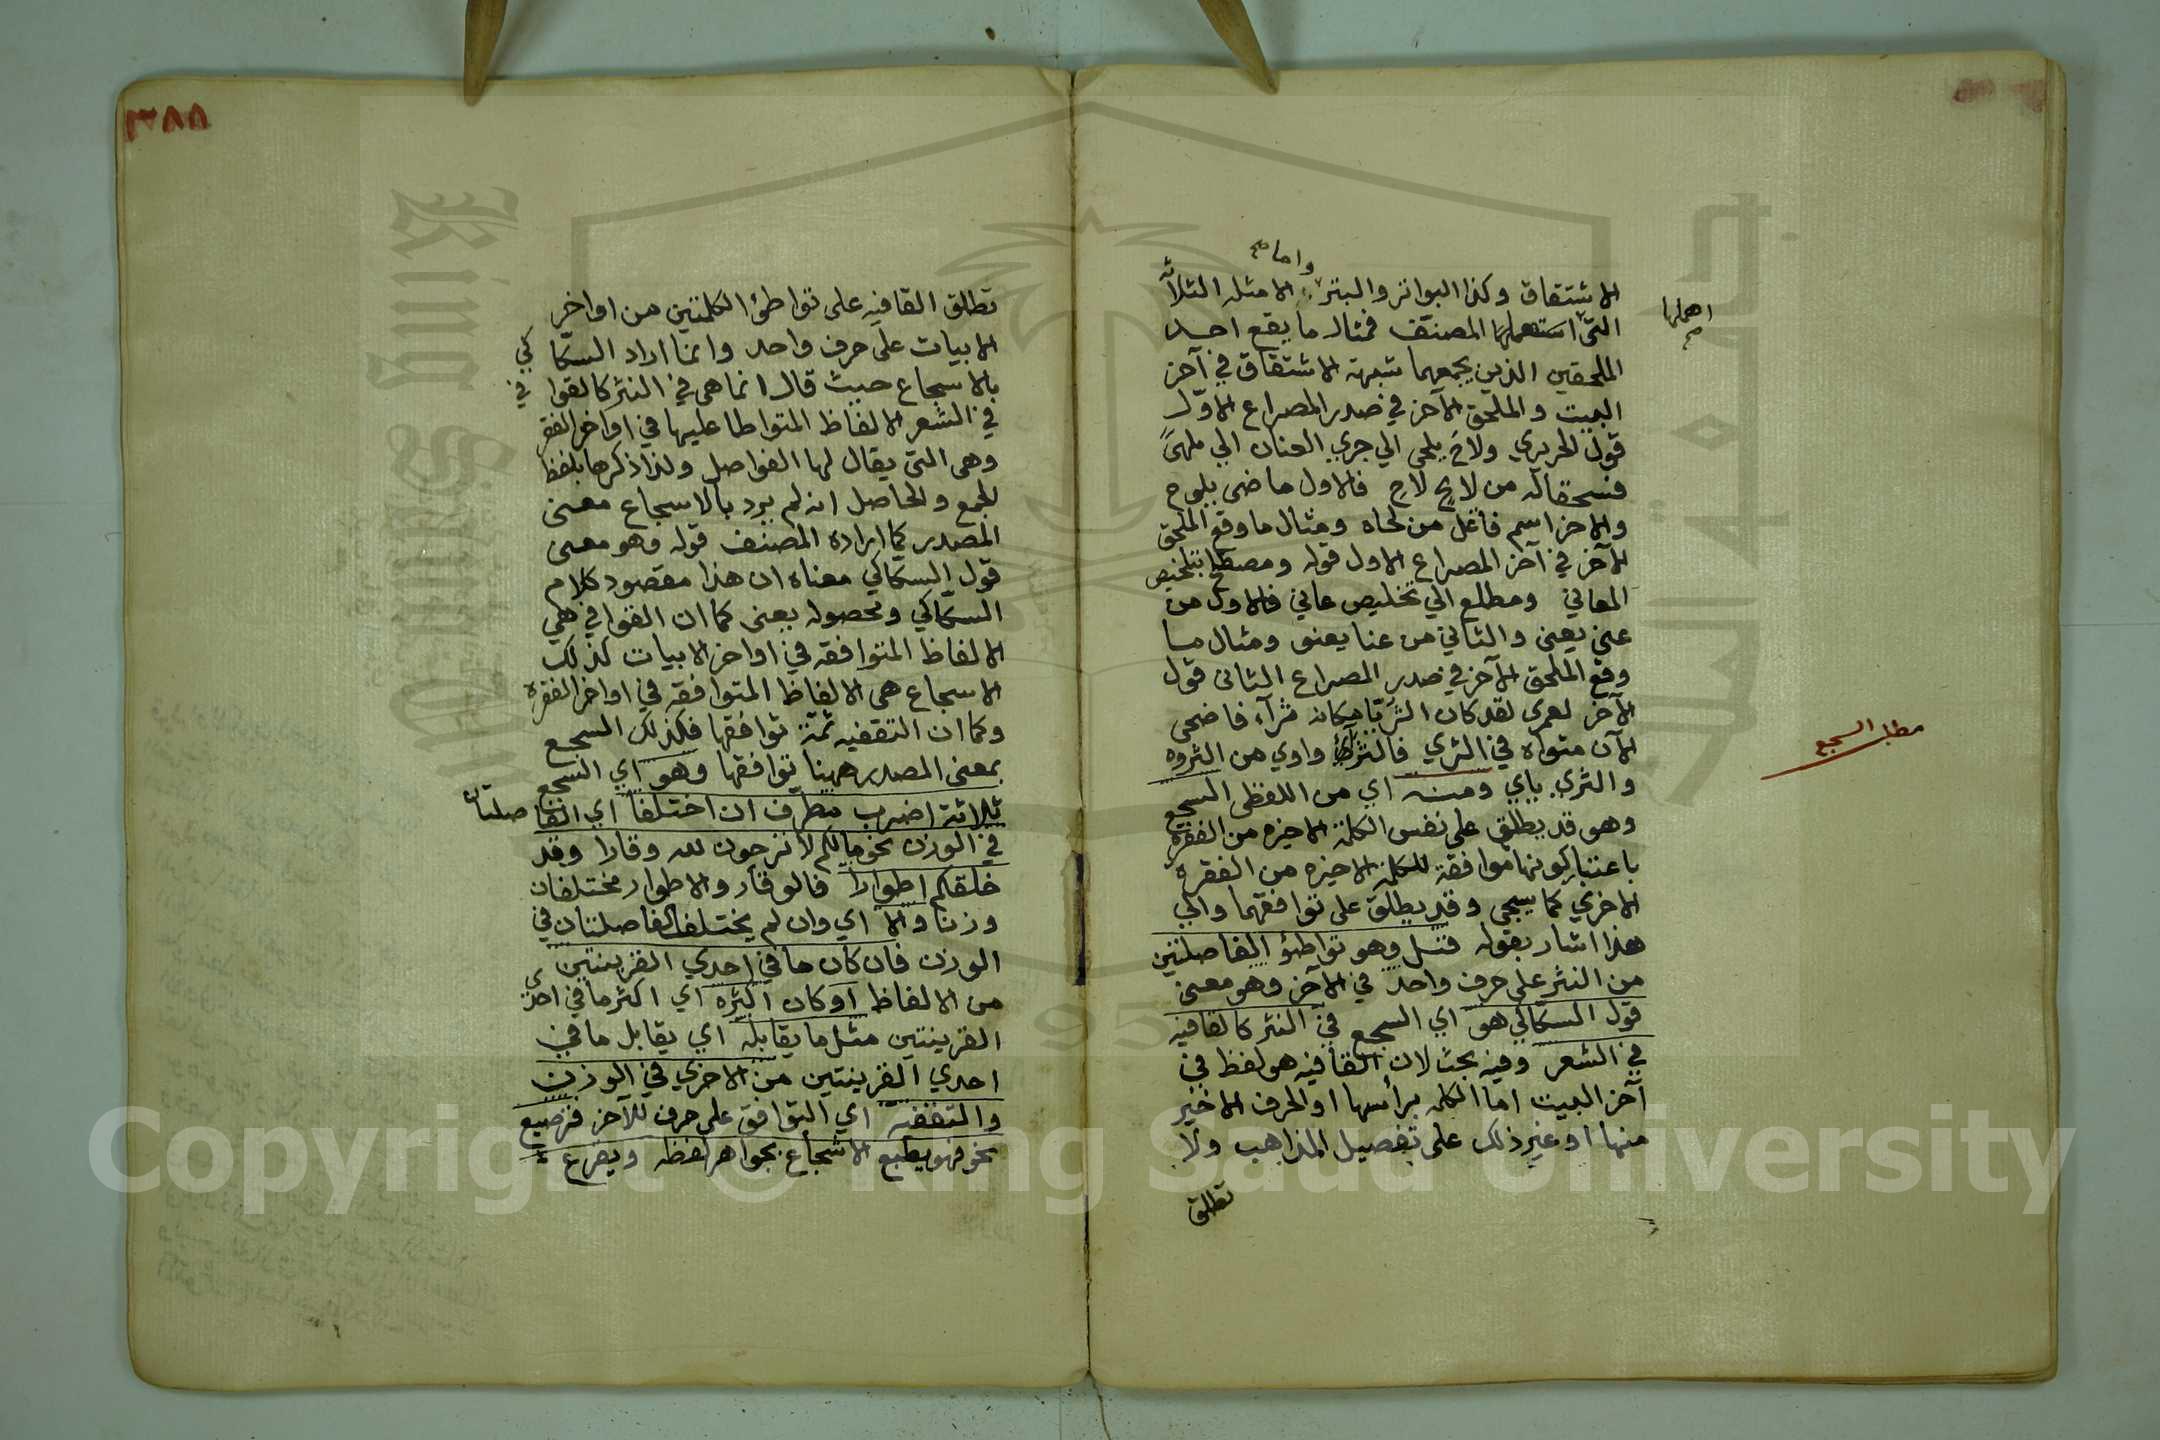 واما صح
الاشتقاق وكذا البواتر والبتر الامثله الثلاثه
التى استعملها المصنف فمثال ما يقع احد
اهملها
صح
الملحقين الذين يجمعهما شبهة الاشتقاق في آخر
البيت والملحق الآخر في صدر المصراع الاوّل
قول الحريري ولاحَ يلحى الي جري العنان الي ملهىً
فسحقا له من لايح لاحِ فالاول ماضى يلوح
والاخر اسم فاعل من لحاه ومثال ما وقع الملحق
الآخر في آخر المصراع الاول قوله ومضطلع بتلخيص
المعاني ومطلع الي تخليص عاني فالاول من
عنى يعنى والثاني من عنا يعنو ومثال ما
وقع الملحق الآخر في صدر المصراع الثانى قول
الآخر لعمرى لقد كان الثريّا مكانه ثرآء فاضحى
الآن مثواه في الثري فالثراء واوي من الثروه
مطلب السجع
والثري يايي ومنه اي من اللفظى السجع
وهو قد يطلق علي نفس الكلمة الاخيره من الفقرة
باعتبار كونها موافقة للكلمة الاخيره من الفقره
الاخري كما سيجى وقد يطلق على توافقهما والي
هذا اشار بقوله قيل وهو تواطئ الفاصلتين
من النثر علي حرف واحد في الآخر وهو معنى
قول السكّاكي هو اي السجع في النثر كالقافيه
في الشعر وفيه بحث لان القافيه هو لفظ في
آخر البيت اما الكلمه برأسها او الحرف الاخير
منها او غير ذلك على تفصيل المذاهب ولا
تطلق
٣٨٥
تطلق القافيه على تواطؤ الكلمتين من اواخر
الابيات على حرف واحد وانما اراد السكّاكي
بالاسجاع حيث قال انما هى في النثر كالقوافي
في الشعر الالفاظ المتواطا عليها في اواخر الفقر
وهى التى يقال لها الفواصل ولذا ذكرها بلفظ
الجمع والحاصل انه لم يرد بالاسجاع معنى
المصدر كما اراده المصنف قوله وهو معنى
قول السكاكي معناه ان هذا مقصود كلام
السكّاكي ومحصوله يعنى كما ان القوافي هى
الالفاظ المتوافقه في اواخر الابيات كذلك
الاسجاع هى الالفاظ المتوافقه في اواخر الفقره
وكما ان التقفيه ثمّة توافقها فكذلك السجع
بمعنى المصدر ههنا توافقها وهو اي السجع
ثلاثة اضرب مطرف ان اختلفا اي الفاصلتان
في الوزن نحو مالكم لا ترجون لله وقارا وقد
خلقكم اطوارا فالوقار والاطوار مختلفان
وزنا والا اي وان لم يختلف الفاصلتان في
الوزن فان كان ما في احدي القرينتين
من الالفاظ او كان اكثره اي اكثر ما في احدى
القرينتين مثل ما يقابله اي يقابل ما في
احدي القرينتين من الاخري في الوزن
والتقفية اي التوافق على حرف للآخر فترصيع
نحو فهو يطبع الاسجاع بجواهر لفظه ويقرع
Copyright © King Saud University